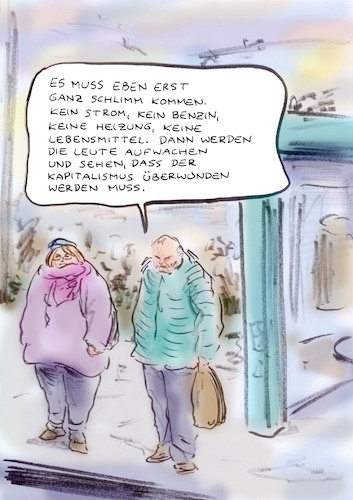 ES MUSS EBEN ERST
GANZ SCHLIMM KOMMEN.
KEIN STROM, KEIN BENZIN,
KEINE HEIZUNG, KEINE
LEBENSMITTEL. DANN WERDEN
DIE LEUTE AUFWACHEN
UND SEHEN, DASS DER
KAPITALISMUS ÜBERWUNDEN
WERDEN MUSS.